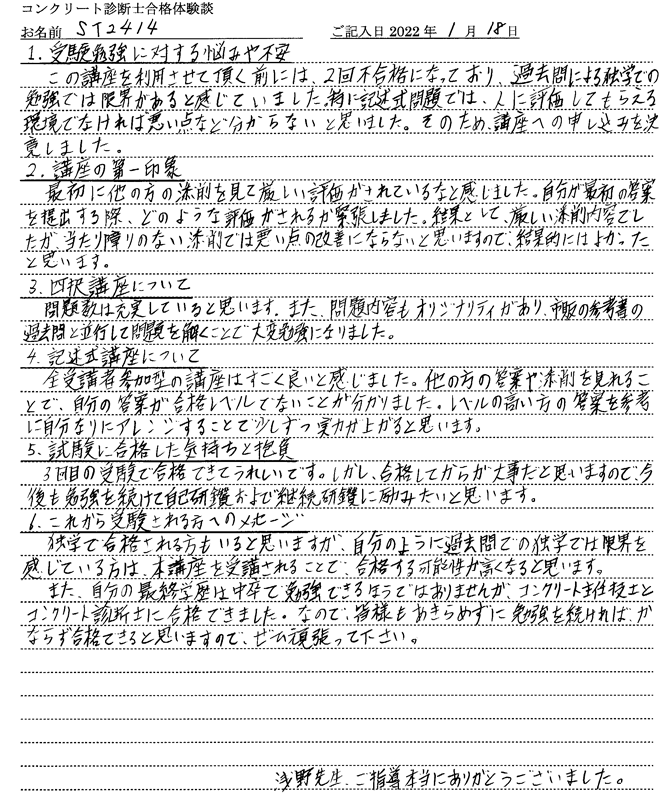 コンクリート診断士合格体験談
お名前 ST2414 ご記入日 2022 年 1 月 18 日
1. 受験勉強に対する悩みや不安
この講座を利用させて頂く前には、2回不合格になっており、過去問による独学での
勉強では限界があると感じていました。特に記述式問題では、人に評価してもらえる
環境でなければ悪い点など分からないと思いました。そのため、講座への申し込みを決
意しました。
2. 講座の第一印象
最初に他の方の添削を見て厳しい評価がされているなと感じました。自分が最初の答案
を提出する際、どのような評価がされるか緊張しました。結果として、厳しい添削内容でし
たが、当たり障りのない添削では悪い点の改善にならないと思いますので、結果的にはよかった
と思います。
3. 四択講座について
問題数は充実していると思います。また、問題内容もオリジナリティがあり、市販の参考書の
過去問と並行して問題を解くことで大変勉強になりました。
4. 記述式講座について
全受講者参加型の講座はすごく良いと感じました。他の方の答案や添削を見れるこ
とで、自分の答案が合格レベルでないことが分かりました。レベルの高い方の答案を参考
に自分なりにアレンジすることで少しずつ実力が上がると思います。
5. 試験に合格した気持ちと抱負
3回目の受験で合格できてうれしいです。しかし、合格してからが大事だと思いますので、今
後も勉強を続けて自己研鑽および継続研鑽に励みたいと思います。
6. これから受験される方へのメセージ
独学で合格される方もいると思いますが、自分のように過去問での独学では限界を
感じている方は、本講座を受講されることで、合格する可能性が高くなると思います。
また、自分の最終学歴は中卒で勉強できるほうではありませんが、コンクリート主任技士と
コンクリート診断士に合格できました。なので、皆様もあきらめずに勉強を続ければ、か
ならず合格できると思いますので、ぜひ頑張って下さい。
浅野先生、ご指導本当にありがとうございました。